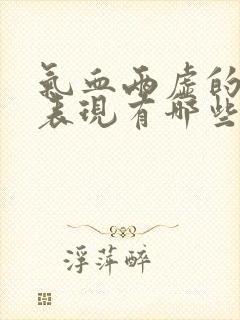 氣血兩虛的
表現有哪些
浮萍醉